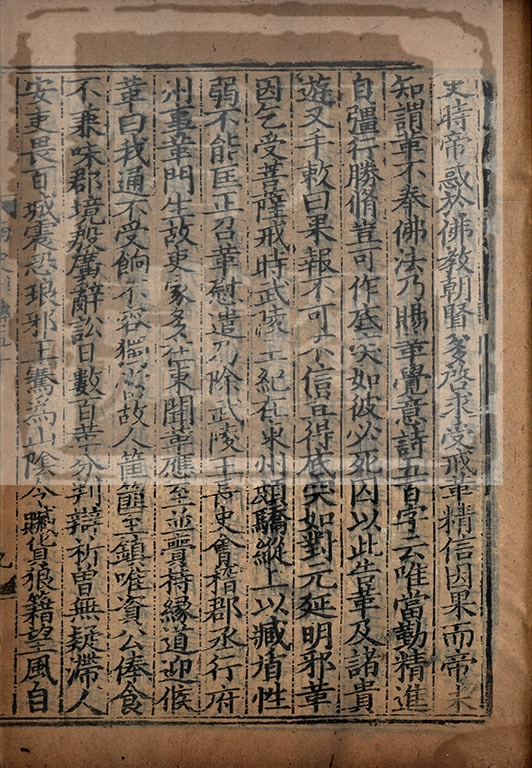 史時帝惑於佛教朝賢多啓求受戒革精信因果而帝未
知謂革不奉佛法乃賜革覺意詩五百字云唯當勤精進
自彊行勝脩豈可作底突如彼必死囚以此告革及諸貴
遊又手敕曰果報不可不信豈得底突如對元延明邪革
因乞受菩薩戒時武陵王紀在東州頗驕縱上以臧盾性
弱不能匡正召革慰遣乃除武陵王長史會稽郡丞行府
州事革門生故吏家多在東聞革應至並賷持緣道迎候
革曰我通不受餉不容獨當故人筐篚至鎮唯資公俸食
不兼味郡境殷廣辭訟日數百革分判辯析曾無疑滯人
安吏畏百城震恐琅邪王騫爲山陰令贓貨狼籍望風自